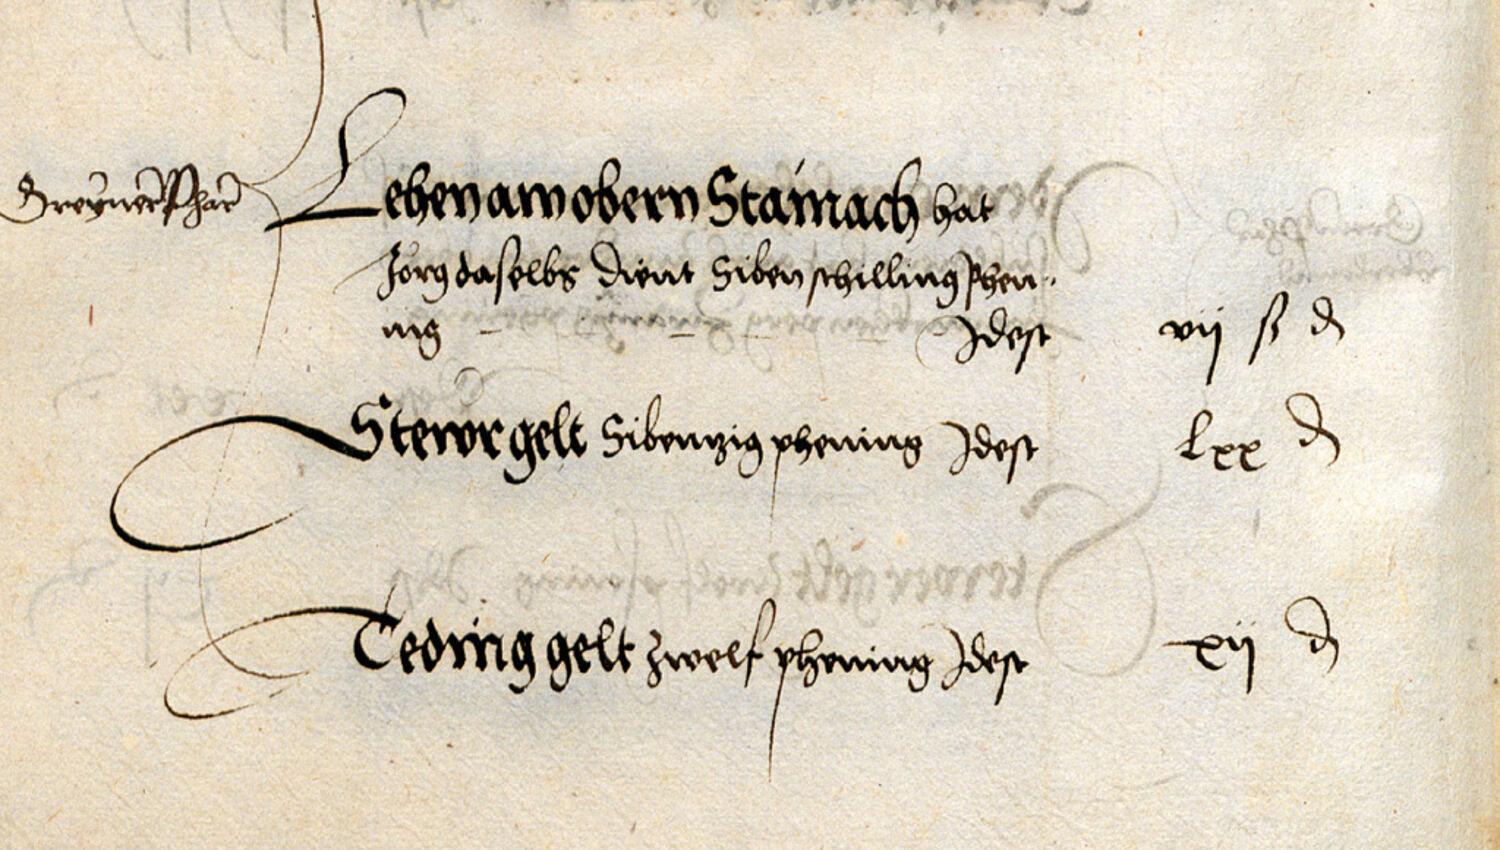 Greyner Phar
Lehen am obern Stainach hat
Jorg daselbs dient Siben schilling phen-
ning Idest vij ß d
Stewr gelt Sibentzig phening Idest lxx d
Teding gelt zwelf phening Idest xij d